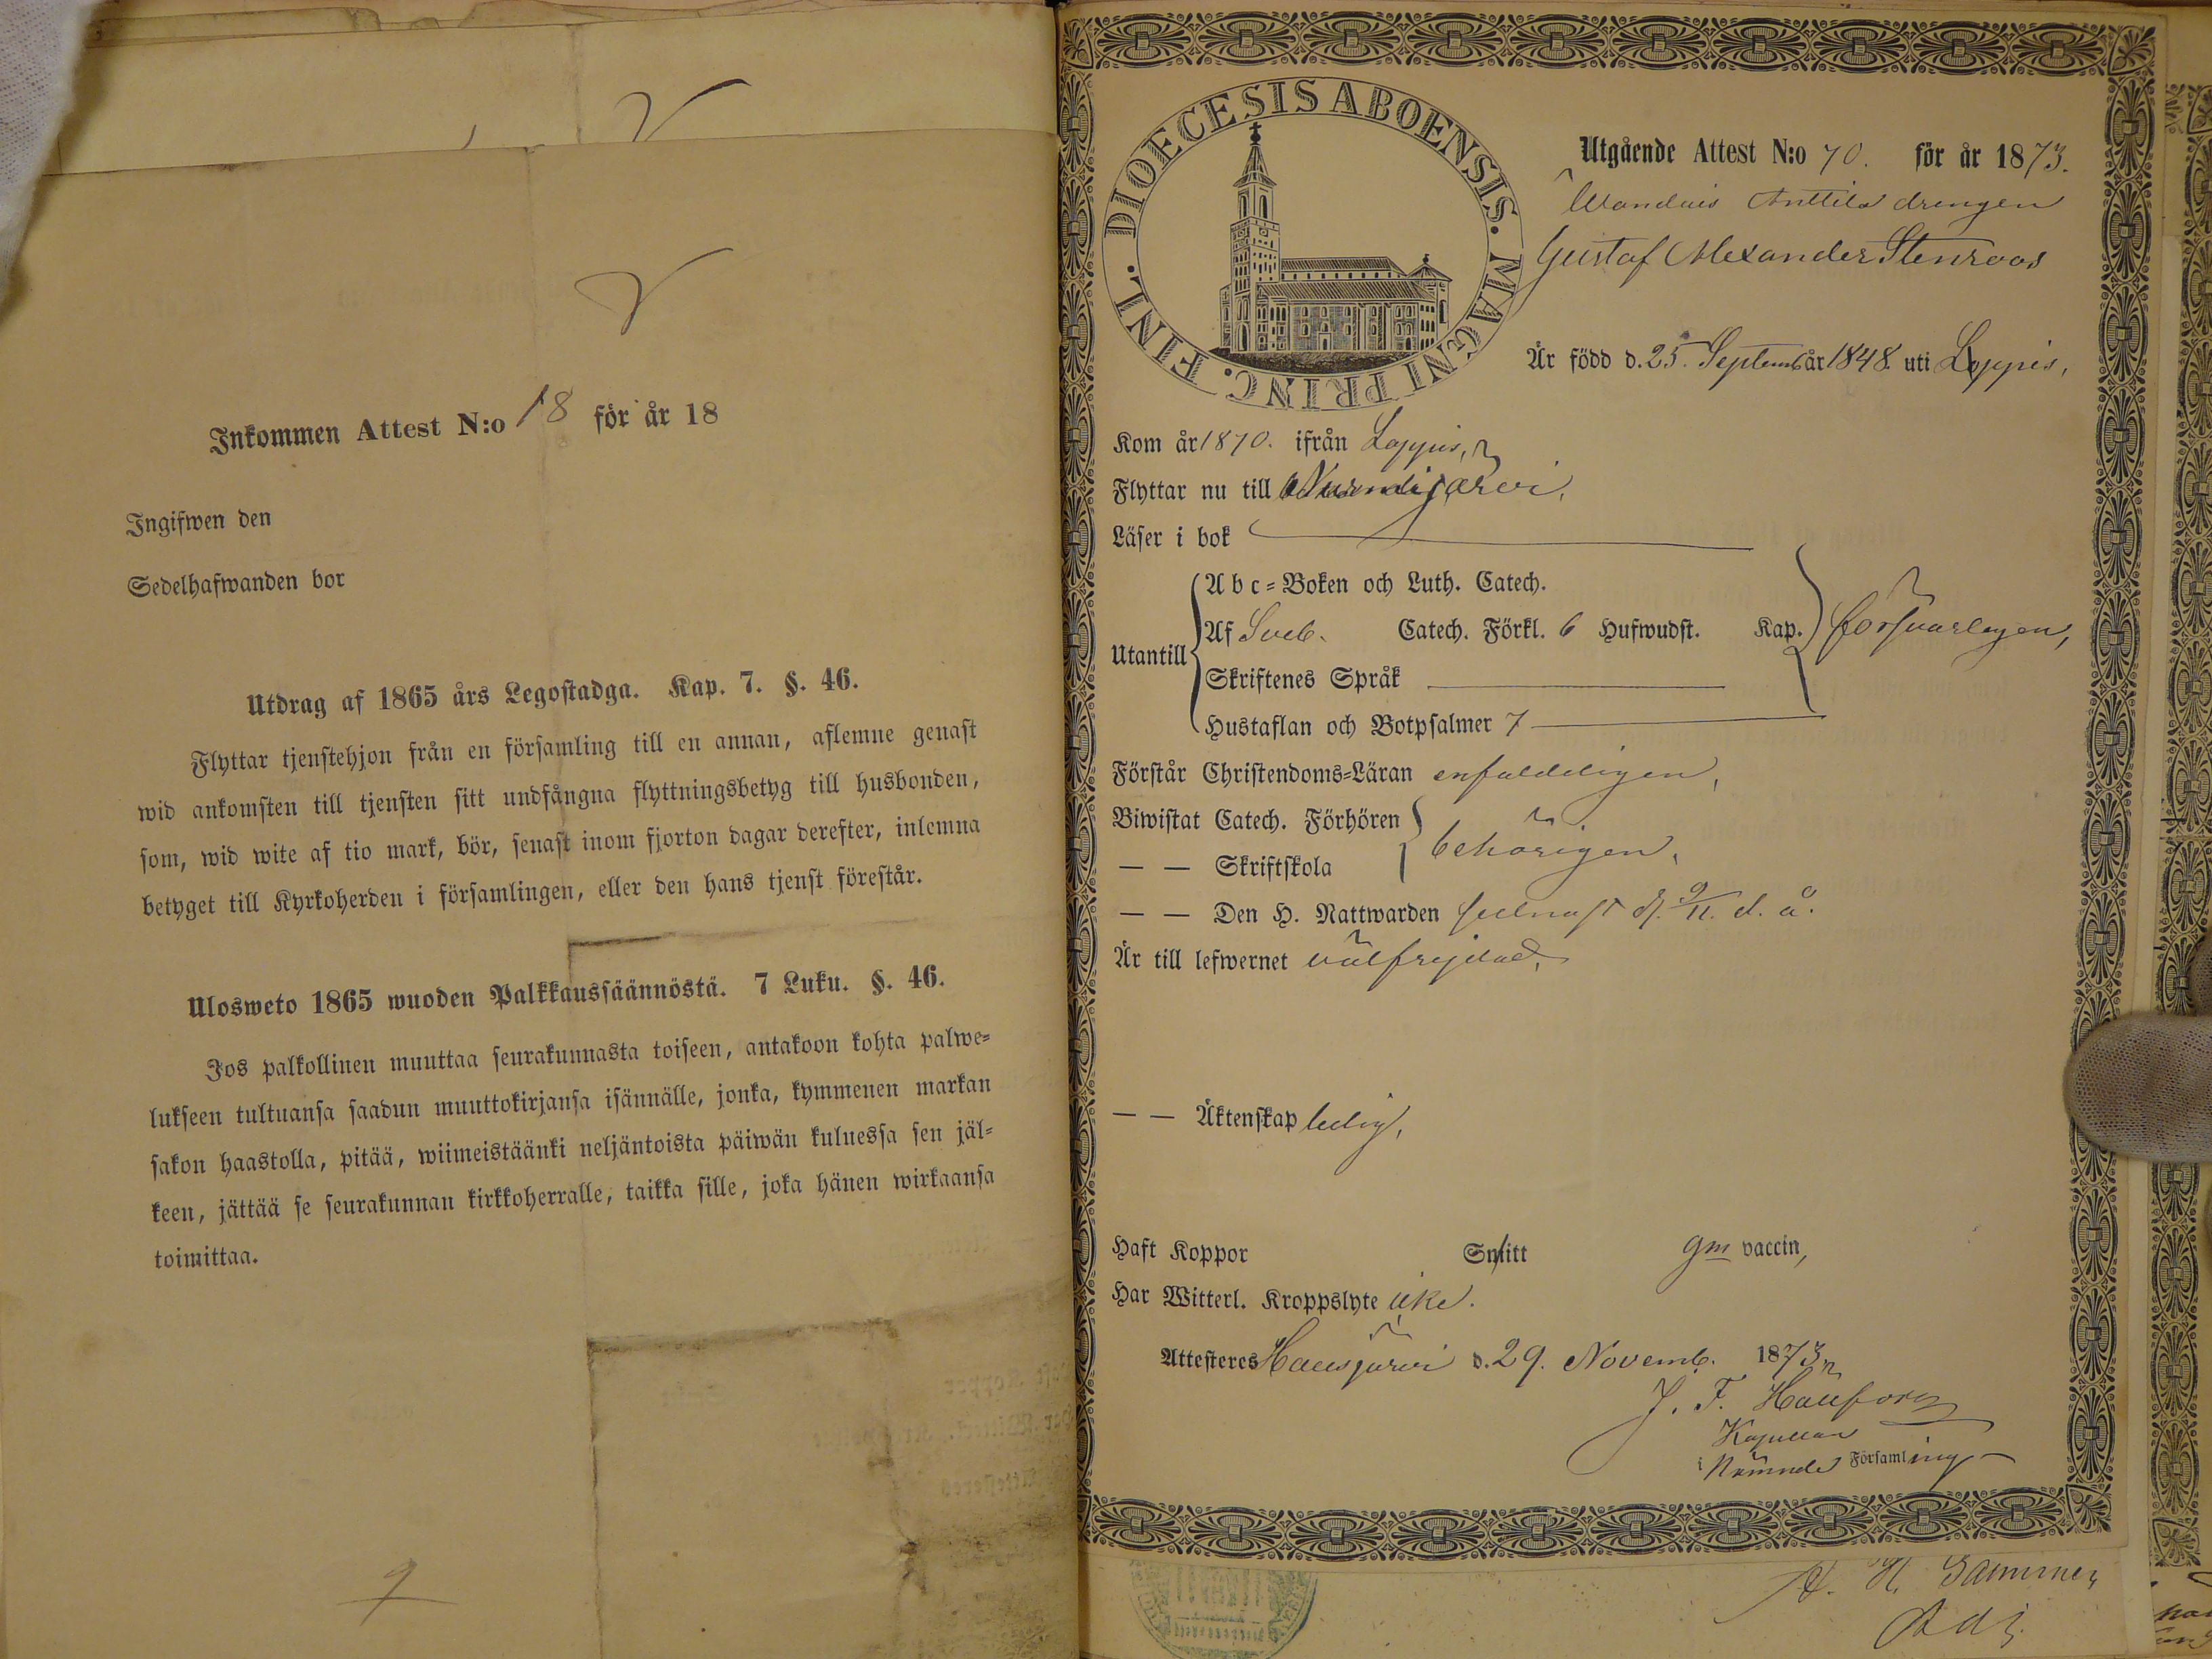 Inkommen Attest N:o 18 för år 18
Ingifwen den
Sedelhafwanden bor
Utdrag af 1865 års Legostadga. Kap. 7. §. 46.
Flyttar tjenstehjon från en församling till en annan, aflemne genast
wid ankomsten till tjensten sitt undfångna flyttningsbetyg till husbonden,
som, wid wite af tio mark, bör, senast inom fjorton dagar derefter, inlemna
betyget till Kyrkoherden i församlingen, eller den hans tjenst förestår.
Ulosweto 1865 wuoden Palkkaussäännöstä. 7 Luku. §. 46.
Jos palkollinen muuttaa seurakunnasta toiseen, antakoon kohta palwe=
lukseen tultuansa saadun muuttokirjansa isännälle, jonka, kymmenen markan
sakon haastolla, pitää, wiimeistäänki neljäntoista päiwän kuluessa sen jäl=
keen, jättää se seurakunnan kirkkoherralle, taikka sille, joka hänen wirkaansa
toimittaa.
DIOECESIS ABOENSIS. MAGNI PRINC. FINL.
Utgående Attest N:o 70. för år 1873.
Anttila drengen
Gustaf Alexander Stenroos
Är född d. 25. Septemb år 1848. uti Loppis,
Kom år 1870. ifrån Loppis,
Flyttar nu till Nurmijärvi,
Läser i bok
Utantill
A b c=Boken och Luth. Catech.
Af Sveb. Catech. Förkl. 6 Hufwudst. Kap. försvarligen,
Skriftenes Språk
Hustaflan och Botpsalmer 7
Förstår Christendoms=Läran enfaldeligen,
Biwistat Catech. Förhören
— — Skriftskola behörigen,
— — Den H. Nattwarden sednast d. 9/11. d. å.
Är till lefwernet välfrejdad,
— — Äktenskap ledig,
Haft Koppor Smitt gm vaccin,
Har Witterl. Kroppslyte icke.
Attesteras Hausjärvi d. 29. Novemb. 1873
J. F.
Kapellan
i nämnde Församling
Adj.